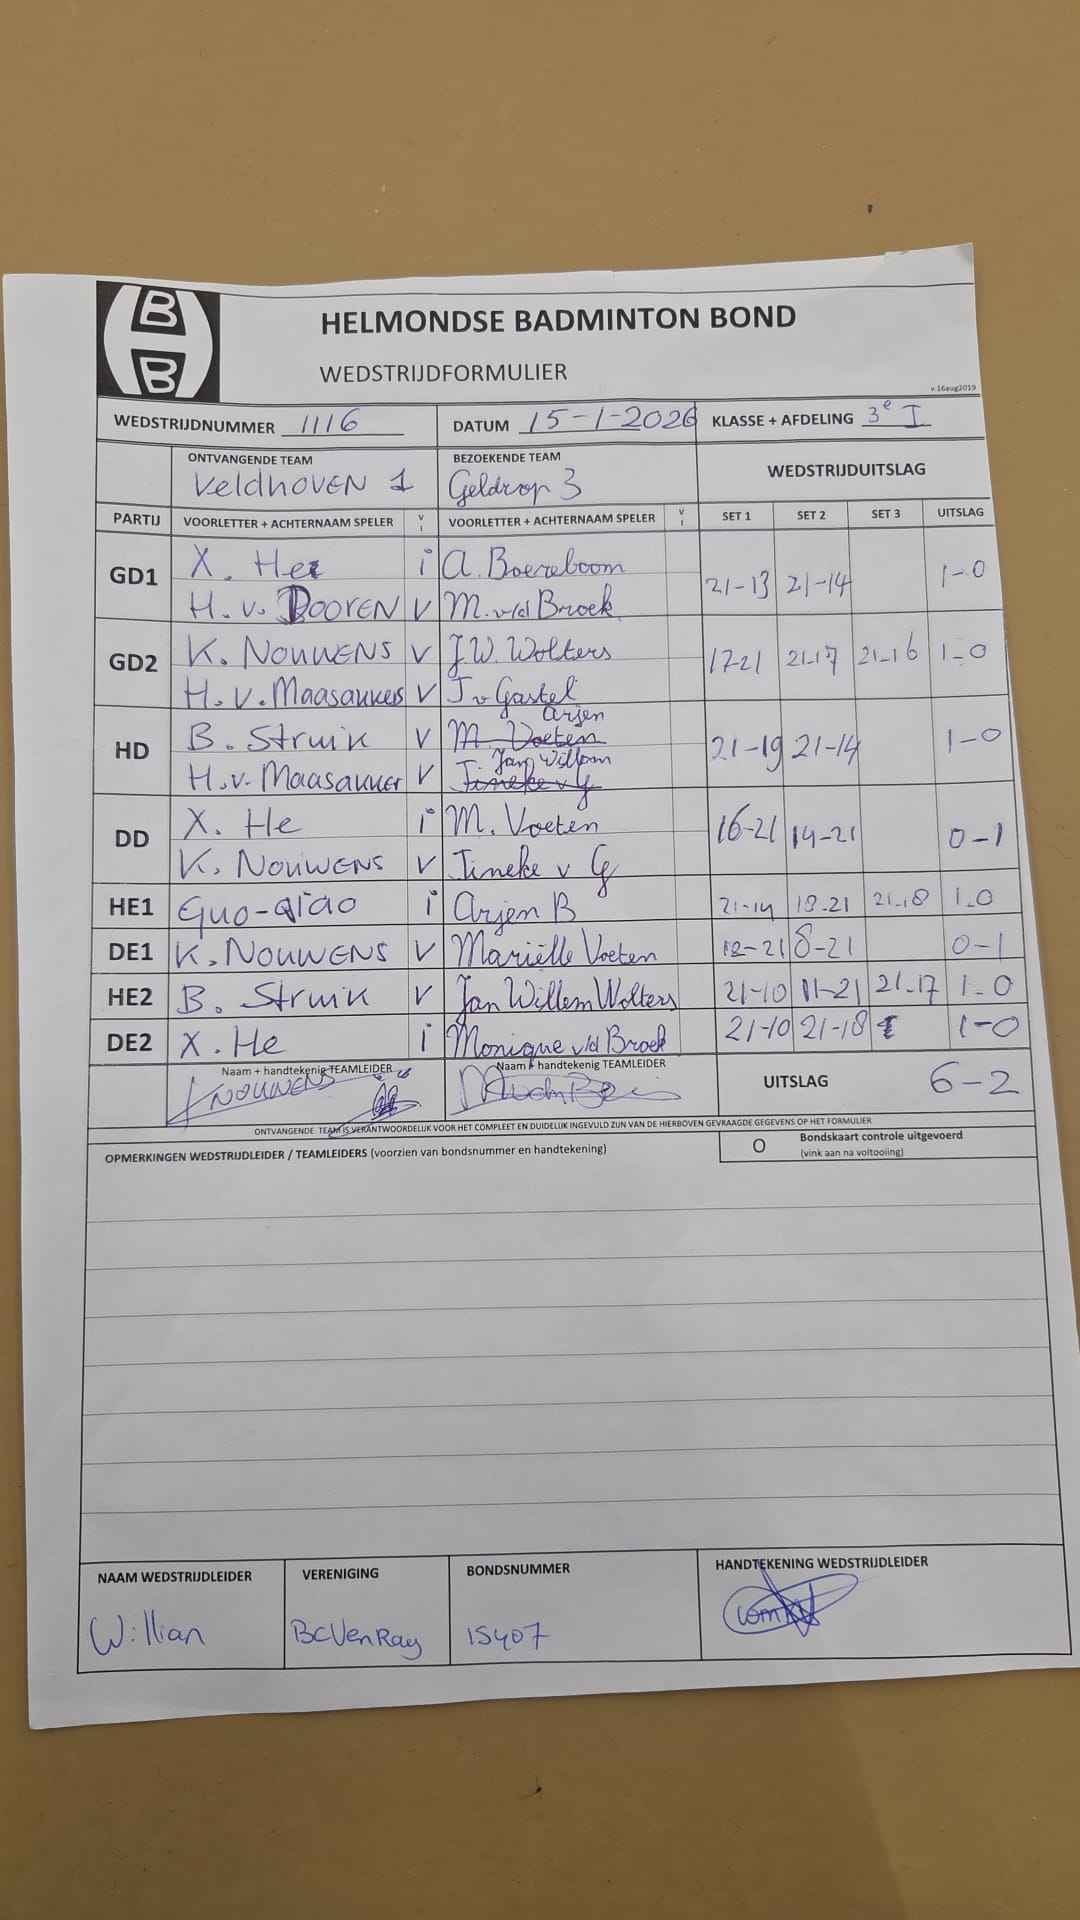 B
B
HELMONDSE BADMINTON BOND
WEDSTRIJDFORMULIER
v.16aug2019
WEDSTRIJDNUMMER 1116 DATUM 15-1-2026 KLASSE + AFDELING 3e I
ONTVANGENDE TEAM BEZOEKENDE TEAM WEDSTRIJDUITSLAG
Veldhoven 1 Geldrop 3
PARTIJ VOORLETTER + ACHTERNAAM SPELER V I VOORLETTER + ACHTERNAAM SPELER V I SET 1 SET 2 SET 3 UITSLAG
GD1 X. He i A. Boereboom 21-13 21-14 1-0
H. v. DOOREN V M. v/d Broek
GD2 K. NOUWENS V J.W. Wolters 17-21 21-17 21-16 1-0
H. v. Maasakkers V J v Gastel
HD B. Struik V M. Voeten Arjen 21-19 21-14 1-0
H. v. Maasakker V Tineke v G Jan Willem
DD X. He i M. Voeten 16-21 14-21 0-1
K. NOUWENS V Tineke v G
HE1 Guo-qiao i Arjen B 21-14 18-21 21-18 1-0
DE1 K. NOUWENS V Mariëlle Voeten 12-21 8-21 0-1
HE2 B. Struik V Jan Willem Wolters 21-10 11-21 21-17 1-0
DE2 X. He i Monique v/d Broek 21-10 21-18 1-0
Naam + handtekenig TEAMLEIDER Naam + handtekening TEAMLEIDER UITSLAG 6-2
NOUWENS
ONTVANGENDE TEAM IS VERANTWOORDELIJK VOOR HET COMPLEET EN DUIDELIJK INGEVULD ZIJN VAN DE HIERBOVEN GEVRAAGDE GEGEVENS OP HET FORMULIER
OPMERKINGEN WEDSTRIJDLEIDER / TEAMLEIDERS (voorzien van bondsnummer en handtekening) O Bondskaart controle uitgevoerd
(vink aan na voltooiing)
NAAM WEDSTRIJDLEIDER VERENIGING BONDSNUMMER HANDTEKENING WEDSTRIJDLEIDER
Willian BC VenRay 15407